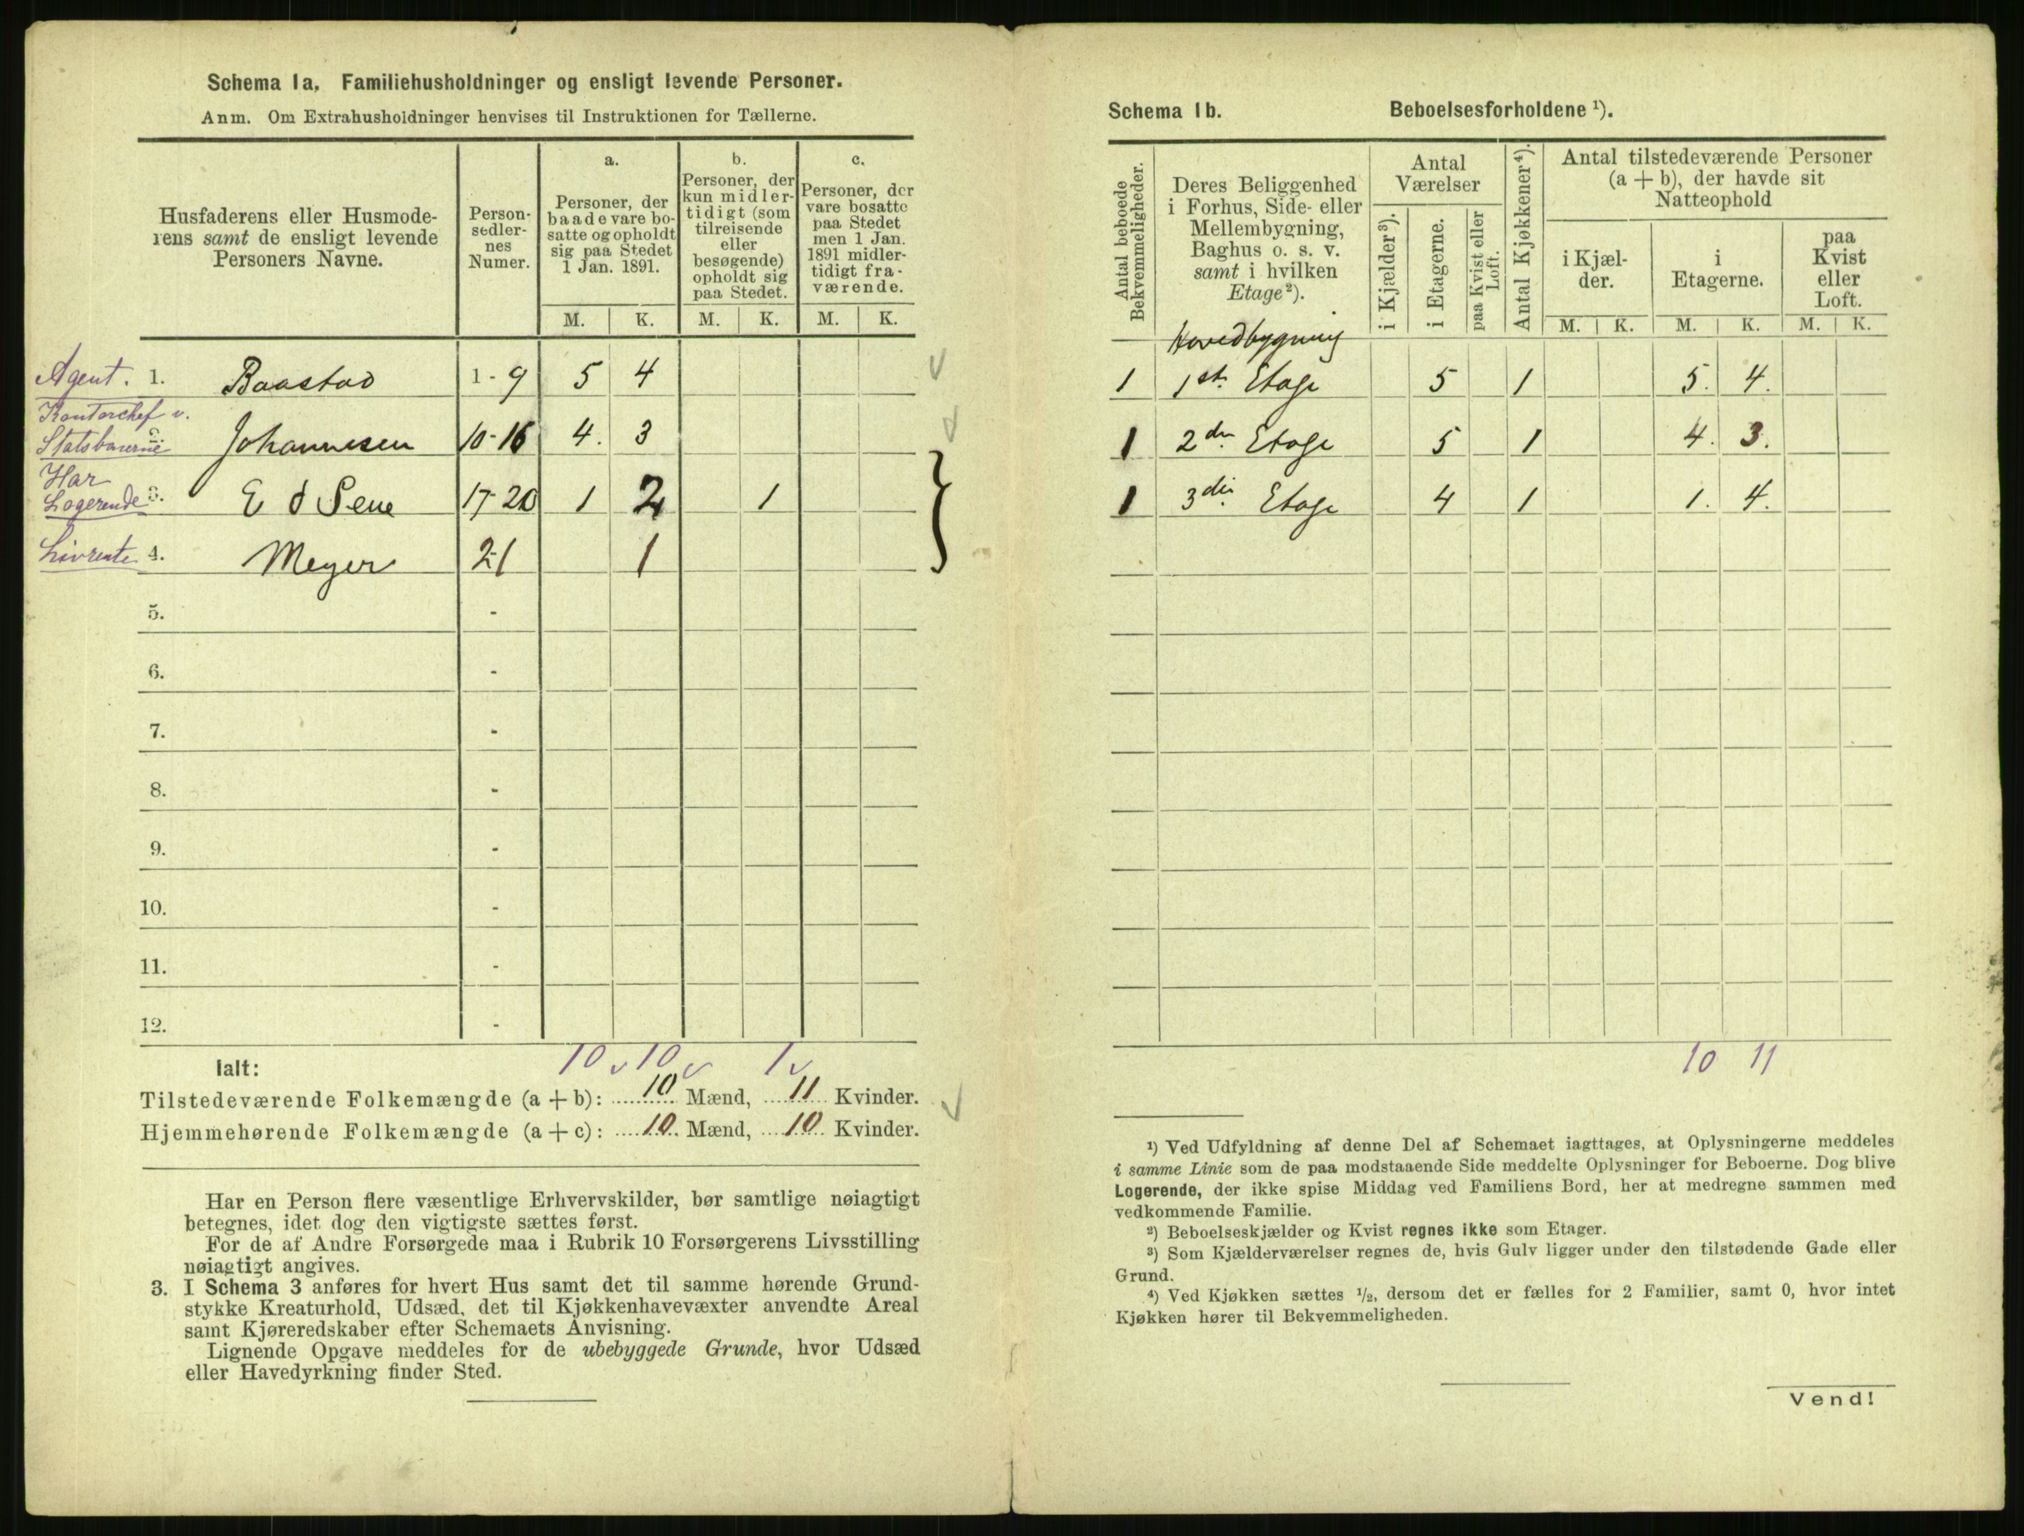 Schema 1a. Familiehusholdninger og ensligt levende Personer.
Anm. Om Extrahusholdninger henvises til Instruktionen for Tællerne.
Husfaderens eller Husmode-
rens samt de ensligt levende
Personers Navne.
Person-
sedler-
nes
Numer.
a.
Personer, der
baade vare bo-
satte og opholdt
sig paa Stedet
1 Jan. 1891.
b.
Personer, der
kun midler-
tidigt (som
tilreisende
eller
besøgende)
opholdt sig
paa Stedet.
c.
Personer, der
vare bosatte
paa Stedet
men 1 Jan.
1891 midler-
tidigt fra-
værende.
M. K. M. K. M. K.
Agent. 1. Baastad 1-9 5 4
Kontorchef v.
Statsbanerne 2. Johannesen 10-16 4. 3
Har
Logerende 3. E d Seue 17-20 1 2 1
Livrente 4. Meyer 21 1
5. -
6. -
7. -
8. -
9. -
10. -
11. -
12. -
Ialt: 10 10 1
Tilstedeværende Folkemængde (a + b): 10 Mænd, 11 Kvinder.
Hjemmehørende Folkemængde (a + c): 10 Mænd, 10 Kvinder.
Har en Person flere væsentlige Erhvervskilder, bør samtlige nøiagtigt
betegnes, idet dog den vigtigste sættes først.
For de af Andre Forsørgede maa i Rubrik 10 Forsørgerens Livsstilling
nøiagtigt angives.
3. I Schema 3 anføres for hvert Hus samt det til samme hørende Grund-
stykke Kreaturhold, Udsæd, det til Kjøkkenhavevæxter anvendte Areal
samt Kjøreredskaber efter Schemaets Anvisning.
Lignende Opgave meddeles for de ubebyggede Grunde, hvor Udsæd
eller Havedyrkning finder Sted.
Schema 1b. Beboelsesforholdene ¹).
Antal beboede
Bekvemmeligheder.
Deres Beliggenhed
i Forhus, Side- eller
Mellembygning,
Baghus o. s. v.
samt i hvilken
Etage²).
Antal
Værelser
i Kjælder³).
i Etagerne.
paa Kvist eller
Loft.
Antal Kjøkkener⁴).
Antal tilstedeværende Personer
(a + b), der havde sit
Natteophold
i Kjæl-
der.
i
Etagerne.
paa
Kvist
eller
Loft.
M. K. M. K. M. K.
Hovedbygning
1 1st. Etage 5 1 5. 4.
1 2den Etage 5 1 4. 3.
1 3die Etage 4 1 1. 4.
10 11
¹) Ved Udfyldning af denne Del af Schemaet iagttages, at Oplysningerne meddeles
i samme Linie som de paa modstaaende Side meddelte Oplysninger for Beboerne. Dog blive
Logerende, der ikke spise Middag ved Familiens Bord, her at medregne sammen med
vedkommende Familie.
²) Beboelseskjælder og Kvist regnes ikke som Etager.
³) Som Kjælderværelser regnes de, hvis Gulv ligger under den tilstødende Gade eller
Grund.
⁴) Ved Kjøkken sættes ¹/₂, dersom det er fælles for 2 Familier, samt 0, hvor intet
Kjøkken hører til Bekvemmeligheden.
Vend!